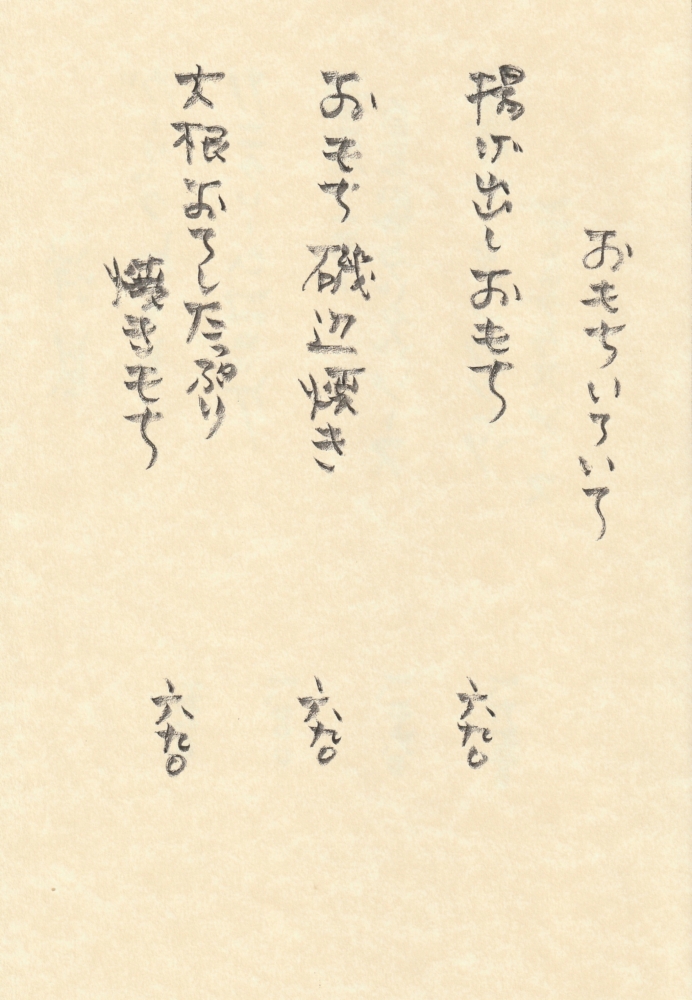 おもちいろいろ
揚げ出しおもち
六九〇
おもち 磯辺焼き
六九〇
大根おろしたっぷり
焼きもち
六九〇